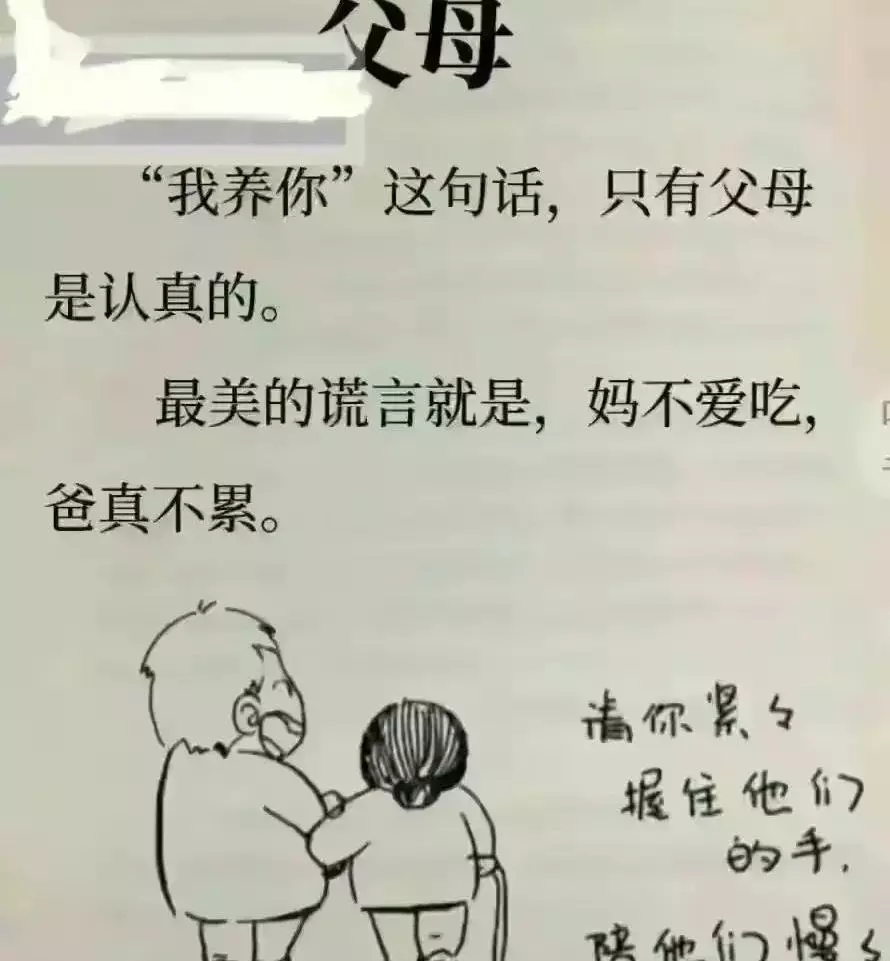 父母
“我养你”这句话，只有父母
是认真的。
最美的谎言就是，妈不爱吃，
爸真不累。
请你紧々
握住他们
的手,
陪他们慢々